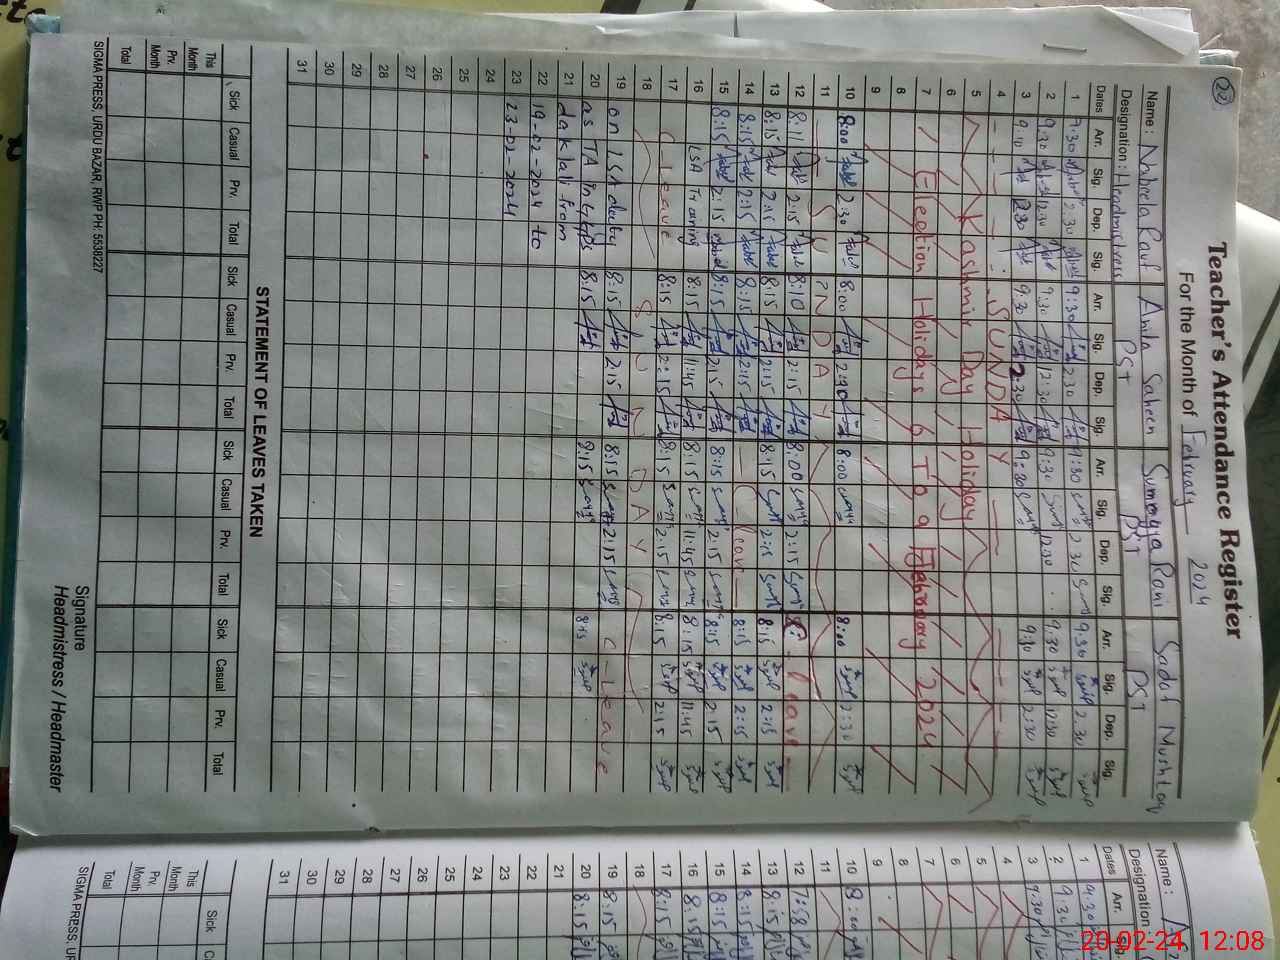 22
Teacher's Attendance Register
For the Month of February 2024
Name: Nabeela Rauf Anila Saheen Sumayya Rani Sadaf Mushtaq
Designation: Headmistress PST PST PST
Dates Arr. Sig. Dep. Sig. Arr. Sig. Dep. Sig. Arr. Sig. Dep. Sig. Arr. Sig. Dep. Sig.
1 9:30 2:30 9:30 2:30 9:30 2:30 9:30 2:30
2 9:30 12:30 9:30 12:30 9:30 12:30 9:30 12:30
3 9:10 2:30 9:30 2:30 9:30 9:30 2:30
4 SUNDAY
5 Kashmir Day Holiday
6
7 Election Holidays 6 To 9 February 2024
8
9
10 8:00 2:30 8:00 2:30 8:00 8:00 2:30
11 SUNDAY
12 8:11 2:15 8:10 2:15 8:00 2:15 C-leave
13 8:15 2:15 8:15 2:15 8:15 2:15 8:15 2:15
14 8:15 2:15 8:15 2:15 C-leave 8:15 2:15
15 8:15 2:15 8:15 2:15 8:15 2:15 8:15 2:15
16 LSA Training 8:15 11:45 8:15 11:45 8:15 11:45
17 C-leave 8:15 2:15 8:15 2:15 8:15 2:15
18 SUNDAY
19 on LSA duty 8:15 2:15 8:15 2:15 C-Leave
20 as TA in GGPS 8:15 8:15 8:15
21 daklali from
22 19-02-2024 to
23 23-02-2024
24
25
26
27
28
29
30
31
STATEMENT OF LEAVES TAKEN
Sick Casual Prv. Total Sick Casual Prv. Total Sick Casual Prv. Total Sick Casual Prv. Total
This Month
Prv. Month
Total
Signature
Headmistress / Headmaster
SIGMA PRESS, URDU BAZAR, RWP PH: 5538227
Name:
Designation
Dates Arr.
1 9:30
2 9:30
3 9:30
4
5
6
7
8
9
10 8:00
11
12 7:58
13 8:15
14 8:15
15 8:15
16 8:15
17 8:15
18
19 8:15
20 8:15
21
22
23
24
25
26
27
28
29
30
31
Sick
This Month
Prv. Month
Total
SIGMA PRESS, UR
20-02-24, 12:08